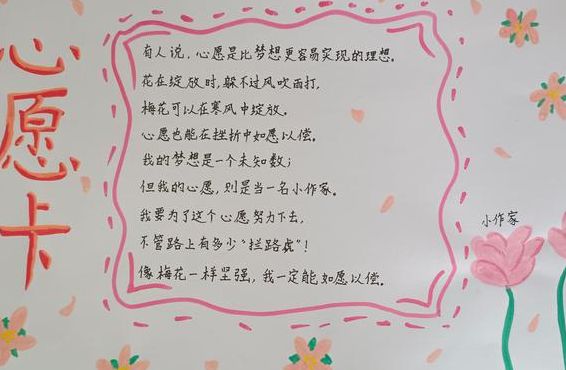 心愿卡
有人说，心愿是比梦想更容易实现的理想。
花在绽放时，躲不过风吹雨打，
梅花可以在寒风中绽放。
心愿也能在挫折中如愿以偿。
我的梦想是一个未知数；
但我的心愿，则是当一名小作家。
我要为了这个心愿努力下去，
不管路上有多少“拦路虎”！
像梅花一样坚强，我一定能如愿以偿。
小作家